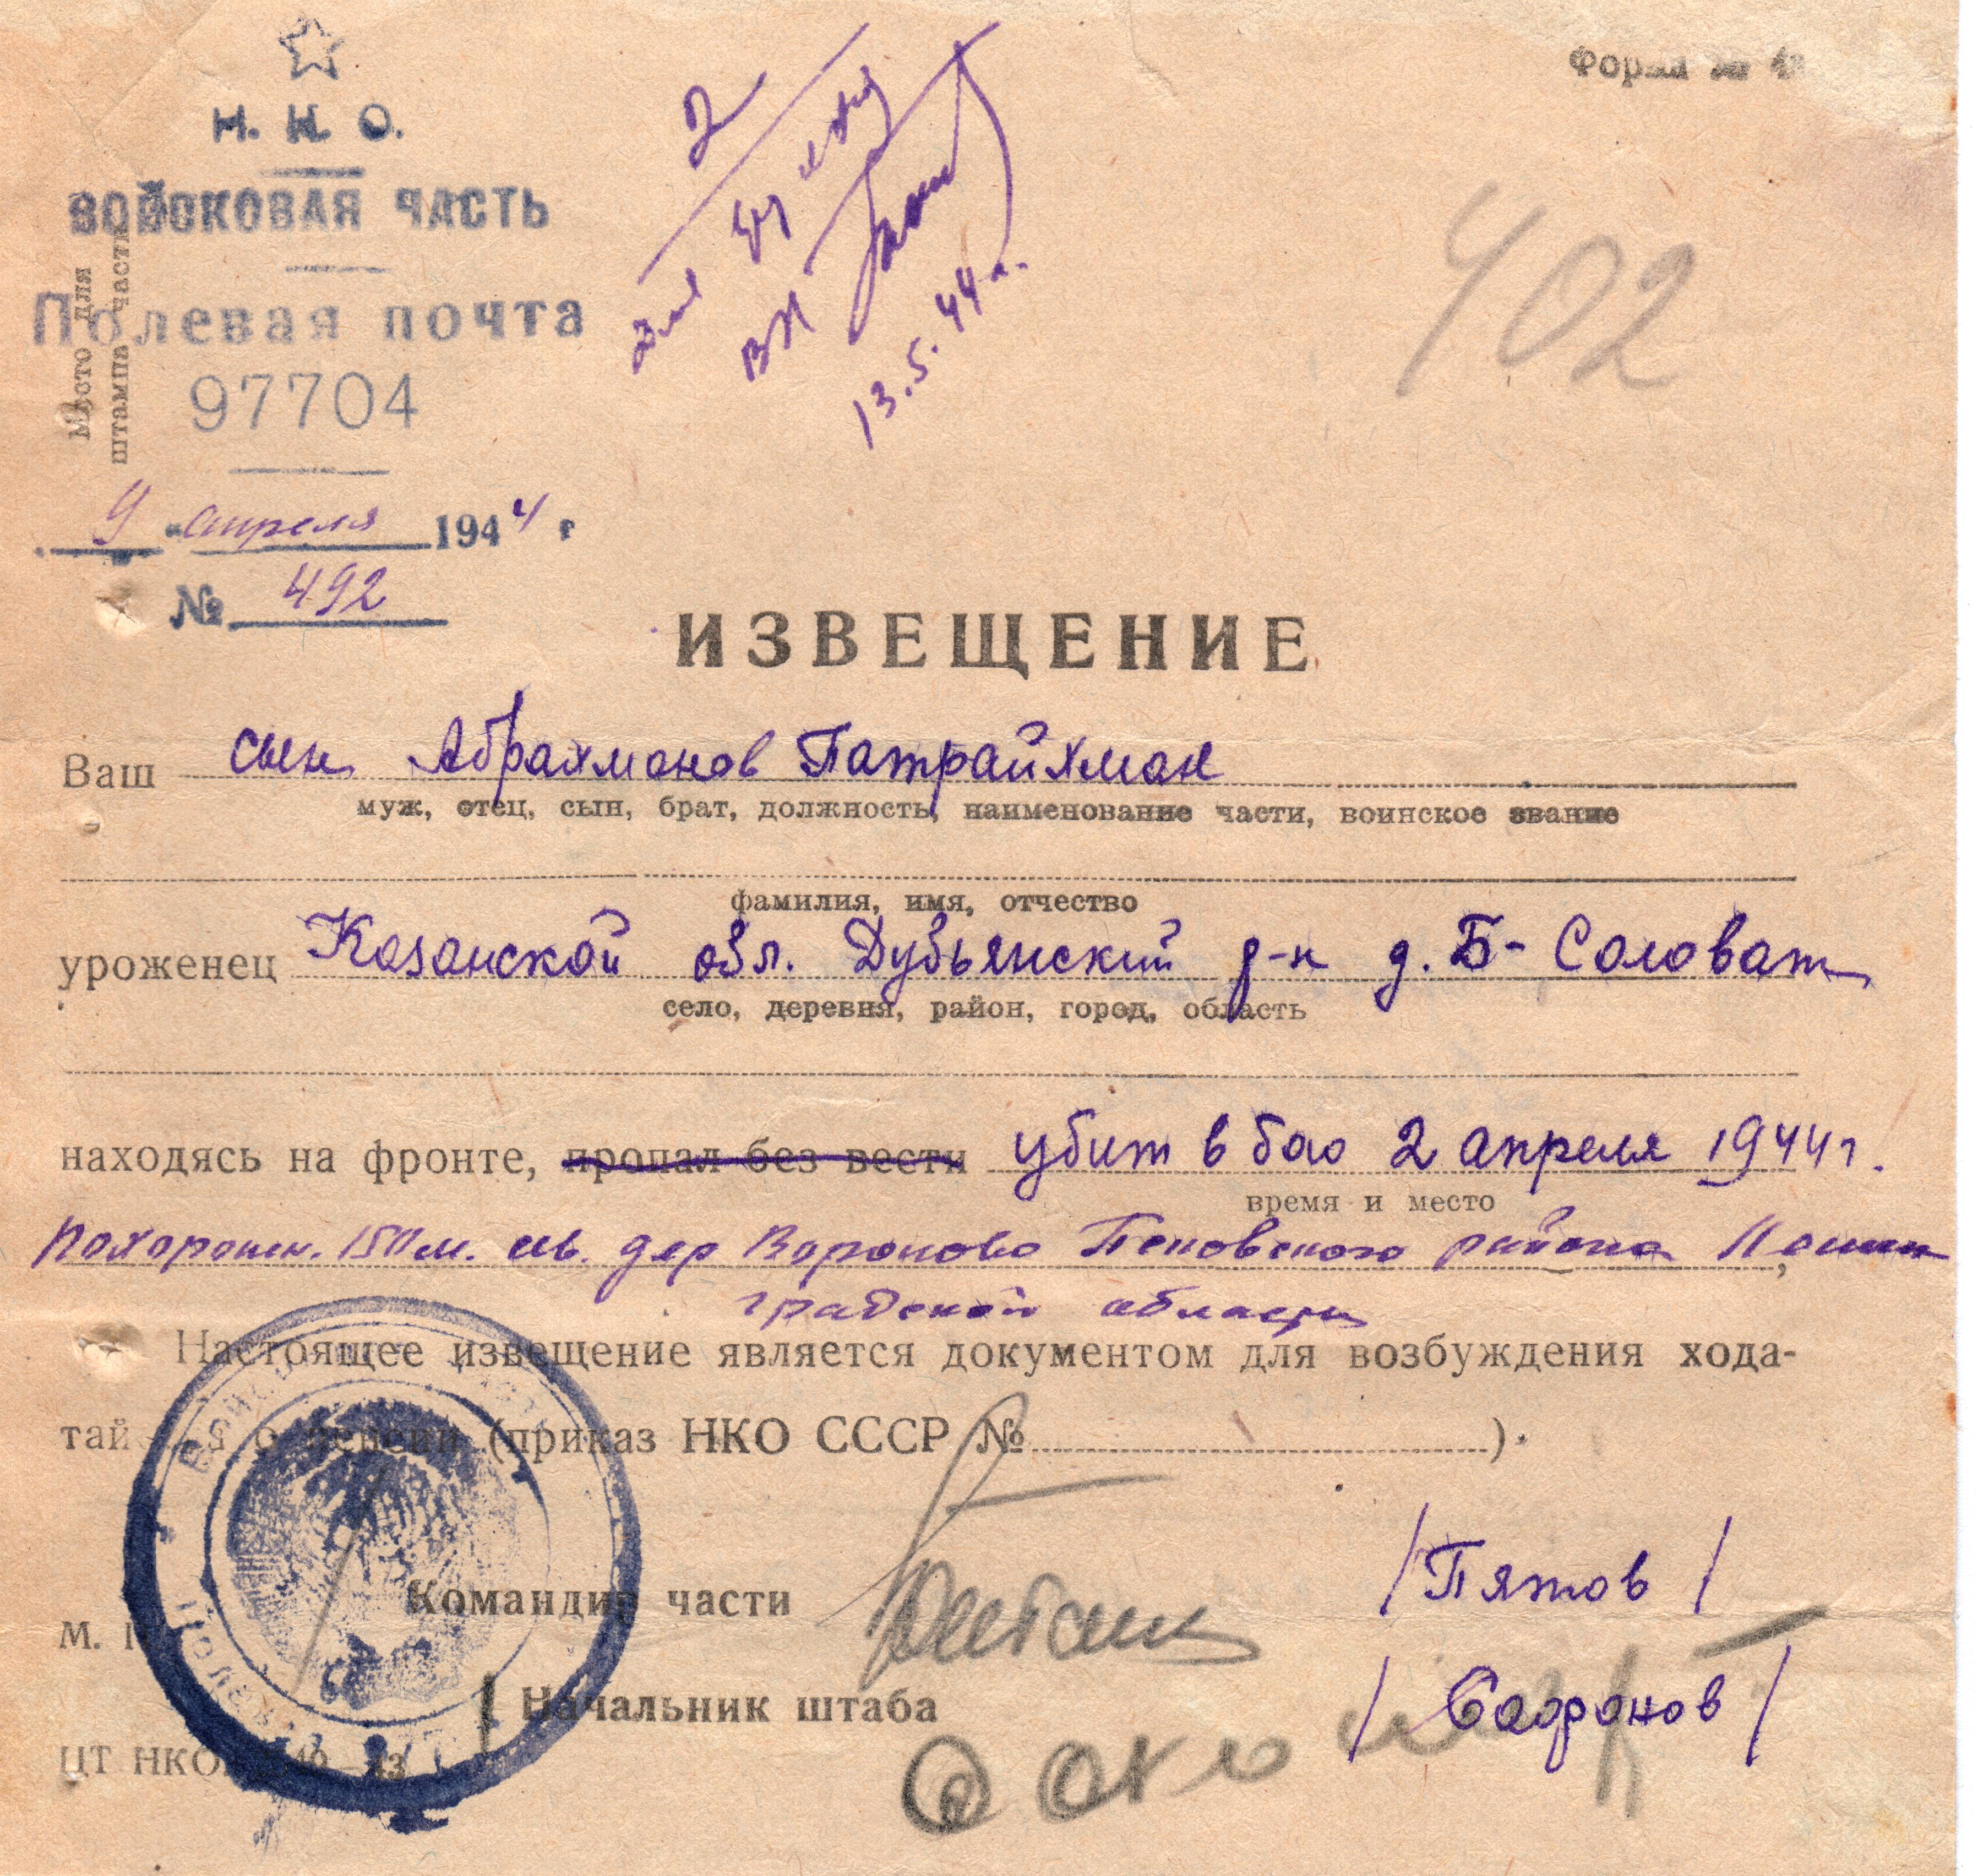 Форма № 4
Н. К. О.
ВОЙСКОВАЯ ЧАСТЬ
Полевая почта
97704
Место для
штампа части
9 апреля 1944 г
№ 492
2
13.5.44 г.
402
ИЗВЕЩЕНИЕ
Ваш сын Абрахманов Патрайхман
муж, отец, сын, брат, должность, наименование части, воинское звание
фамилия, имя, отчество
уроженец Казанской обл. Дубьянский р-н д. Б-Соловат
село, деревня, район, город, область
находясь на фронте, пропал без вести убит в бою 2 апреля 1944 г.
время и место
Похоронен. 150 м. св. дер Вороново Псковского района Ленин
градской области
Настоящее извещение является документом для возбуждения хода-
тай о пенсии (приказ НКО СССР № ).
Командир части /Пятов/
М.
Начальник штаба /Сафронов/
ЦТ НКО